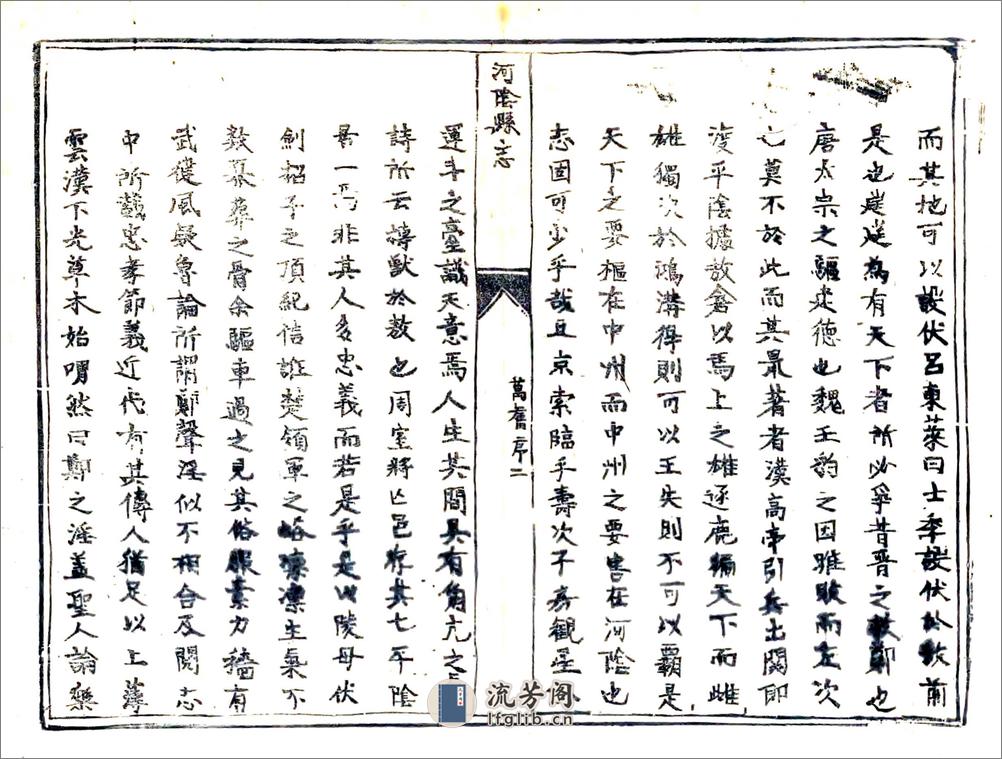 而其地可以設伏呂東萊曰士季設伏於敖前
是也嗟嗟為有天下者所必爭昔晉之救鄭也
唐太宗之驅建德也魏王豹之困雖敗而在次
莫不於此而其最著者漢高帝引兵出關即
復平陰據敖倉以馬上之雄逐鹿徧天下而雌
雄獨次於鴻溝得則可以王失則不可以霸是
天下之要樞在中州而中州之要害在河陰也
志固可少乎哉且京索臨乎壽次子房觀星
河陰縣志
舊序二
運斗之臺識天意焉人生其間具有角亢之
詩所云摶獸於敖也周室將亡邑存其七平陰
居一焉非其人多忠義而若是乎是以陵母伏
劍招子之頂紀信誑楚領軍之凜凜生氣不
數幕葬之骨余驅車過之見其俗服素力穡有
武健風疑魯論所謂鄭聲淫似不相合及閱志
中所載忠孝節義近代有其傳人猶足以上薄
雲漢下光草木始喟然曰鄭之淫蓋聖人論樂
流芳阁
lfglib.cn